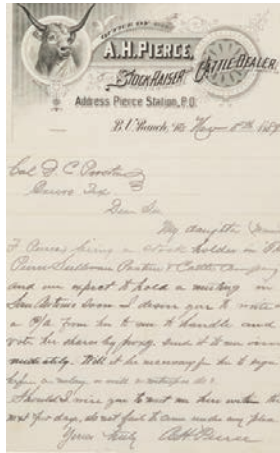 OFFICE OF
A.H. PIERCE,
STOCK RAISER
CATTLE DEALER.
Address Pierce Station, P.O.
B.U. Ranch, May 8th
Col D. C. Proctor
Cuero Tex
Dear Sir
My daughter
F Pierce being a stock holder in the
Pierce Sullivan Pasture & Cattle Company
and we expect to hold a meeting in
San Antonio soon I desire you to write
a P/A from her to me to handle and
vote her shares by proxy send it to me
mediately. Will it be necessary for her to sign
before a notary or will a witness do.
Should I wire you to meet me here within the
next few days, do not fail to come under any plea
Yours truly
A H Pierce